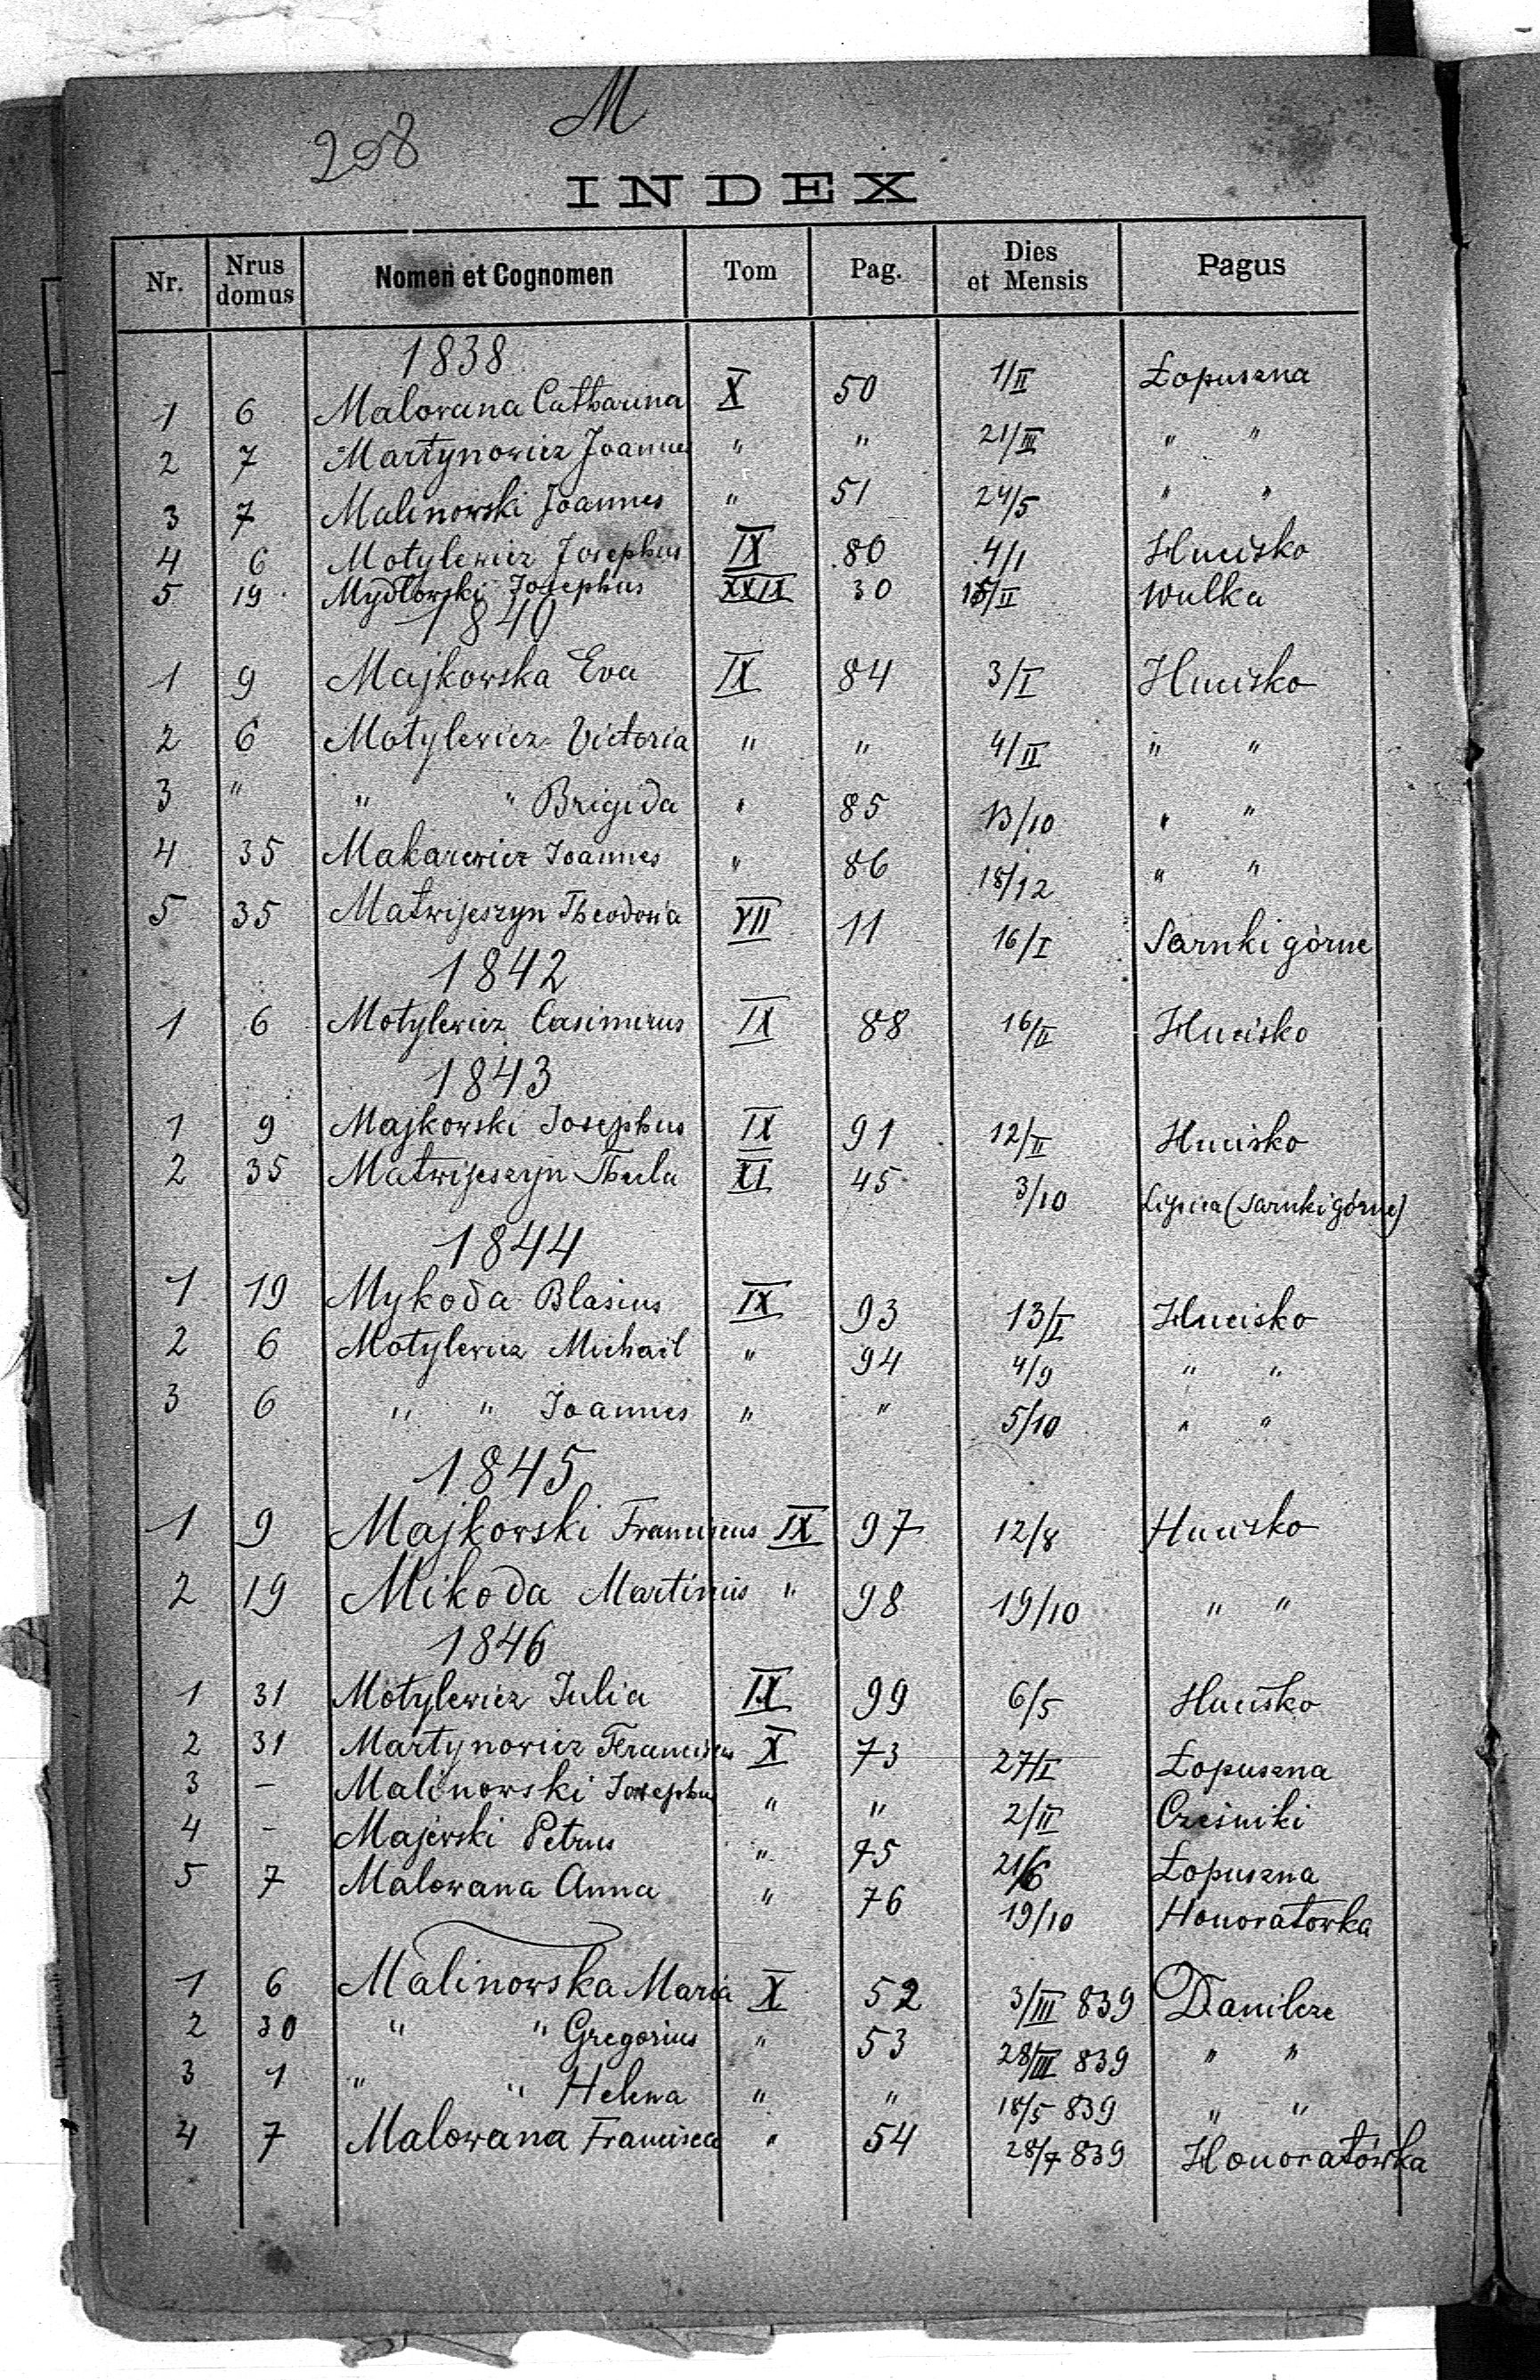 M
208
INDEX
Nr. Nrus domus Nomen et Cognomen Tom Pag. Dies et Mensis Pagus
1838
1 6 Malowana Catharina X 50 1/II Łopuszna
2 7 Martynowicz Joannes " " 21/III " "
3 7 Malinowski Joannes " 51 24/5 " "
4 6 Motylewicz Josephus IX 80 4/1 Hucisko
5 19 Mydłowski Josephus XXIX 30 15/II Wulka
1840
1 9 Majkowska Eva IX 84 3/I Hucisko
2 6 Motylewicz Victoria " " 4/II " "
3 " " " Brigida " 85 13/10 " "
4 35 Makarewicz Joannes " 86 18/12 " "
5 35 Matwijeszyn Theodosia VII 11 16/I Sarnki górne
1842
1 6 Motylewicz Casimirus IX 88 16/II Hucisko
1843
1 9 Majkowski Josephus IX 91 12/II Hucisko
2 35 Matwijeszyn Thecla XI 45 3/10 Lipica (Sarnki górne)
1844
1 19 Mykoda Blasius IX 93 13/I Hucisko
2 6 Motylewicz Michail " 94 4/9 " "
3 6 " " Joannes " " 5/10 " "
1845
1 9 Majkowski Franciscus IX 97 12/8 Hucisko
2 19 Mikoda Martinus " 98 19/10 " "
1846
1 31 Motylewicz Julia IX 99 6/5 Hucisko
2 31 Martynowicz Franciscus X 73 27/I Łopuszna
3 – Malinowski Josephus " " 2/II Cześniki
4 – Majewski Petrus " 75 21/6 Łopuszna
5 7 Malowana Anna " 76 19/10 Honoratowka
1 6 Malinowska Maria X 52 3/III 839 Danilcze
2 30 " " Gregorius " 53 28/III 839 " "
3 1 " " Helena " " 18/5 839 " "
4 7 Malowana Francisca " 54 28/7 839 Honoratówka